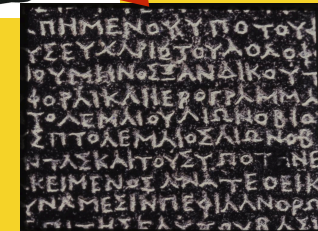 ΠΗΜΕΝΟΥΥΠΟΤΟΥ
ΥΣΕΥΧΑΡΙΣΤΟΥΛΟΛΟΦ
ΙΟΥΜΗΝΟΣΞΑΝΔΙΚΟΥΤ
ΦΟΡΑΙΚΑΙΙΕΡΟΓΡΑΜΜΑ
ΤΟΛΕΜΑΙΟΥΑΙΩΝΟΒΙΟ
ΣΠΤΟΛΕΜΑΙΟΣΑΙΩΝΟΒ
ΝΤΑΣΚΑΙΤΟΥΣΥΠΟΤ ΝΕ
ΚΕΙΜΕΝΟΣΑΝΑΤΕΘΕΙΚ
ΥΝΑΜΕΣΙΝΠΕΦΙΛΑΝΘΡΩ